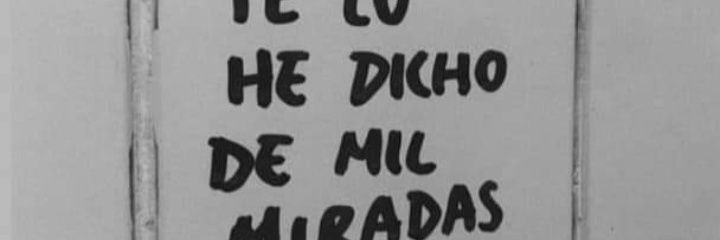 TE LO
HE DICHO
DE MIL
MIRADAS